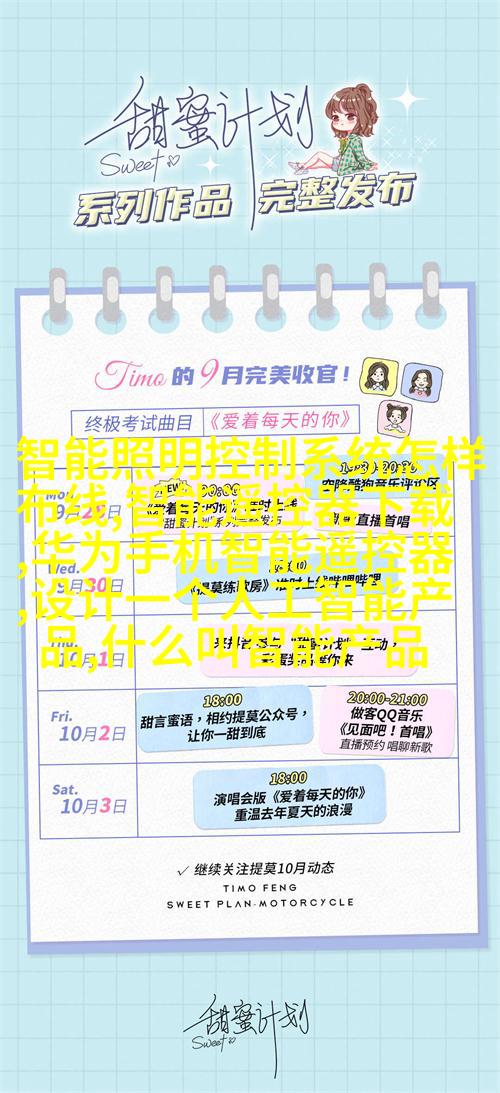 甜蜜计划
Sweet
系列作品 完整发布
Timo的9月完美收官!
终极考试曲目 《爱着每天的你》
智能照明控制系统怎样
布线,智能遥控器下载
,华为手机智能遥控器
,设计一个人工智能产
品,什么叫智能产品
Mon.
9月28日
空降酷狗音乐评论区
Wed.
9月30日
《提莫练歌房》准时上线哔哩哔哩
1日
Fri.
10月2日
18:00
甜言蜜语,相约提莫公众号,
让你一甜到底
20:00-21:00
做客QQ音乐
《见面吧!首唱》
直播预约 唱聊新歌
Sat.
10月3日
18:00
演唱会版《爱着每天的你》
重温去年夏天的浪漫
✓ 继续关注提莫10月动态
TIMO FENG
SWEET PLAN-MOTORCYCLE
甜蜜计划
Sweet